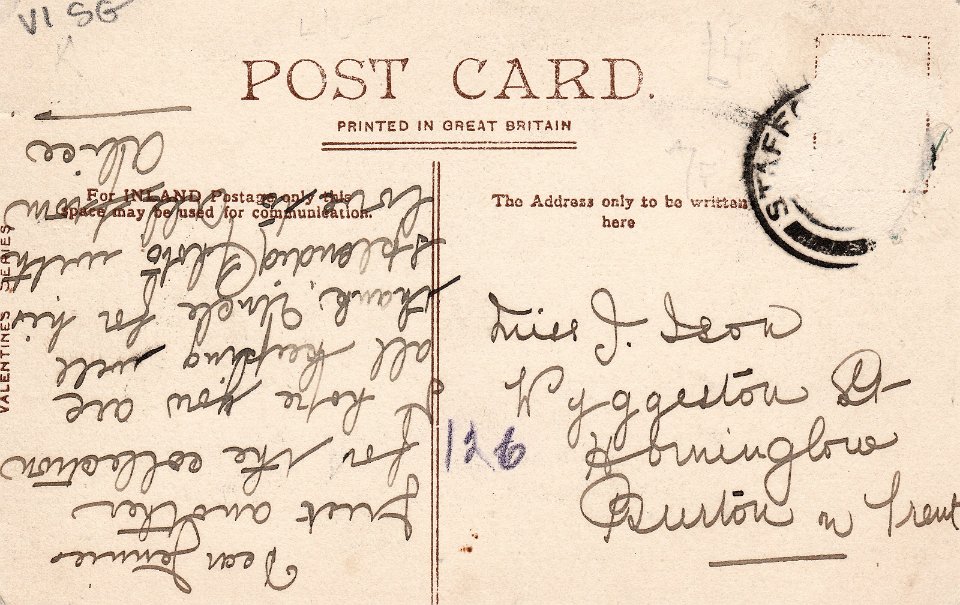 VI SG
POST CARD.
PRINTED IN GREAT BRITAIN
For INLAND Postage only this
space may be used for communication.
The Address only to be written
here
STAFFO
VALENTINES SERIES
Dear Jennie
Just another
for the collection
I hope you are
all keeping well
thank, Uncle for his
splendid Photo with
love to all from
Alice
126
Miss J. Ison
Wyggeston St
Horninglow
Burton on Trent